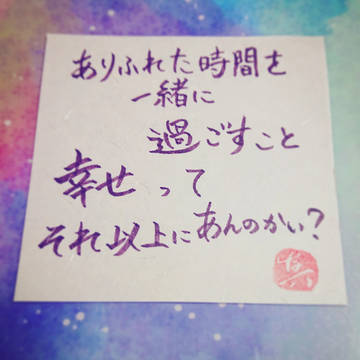 ありふれた時間を
一緒に
過ごすこと
幸せって
それ以上にあんのかい?